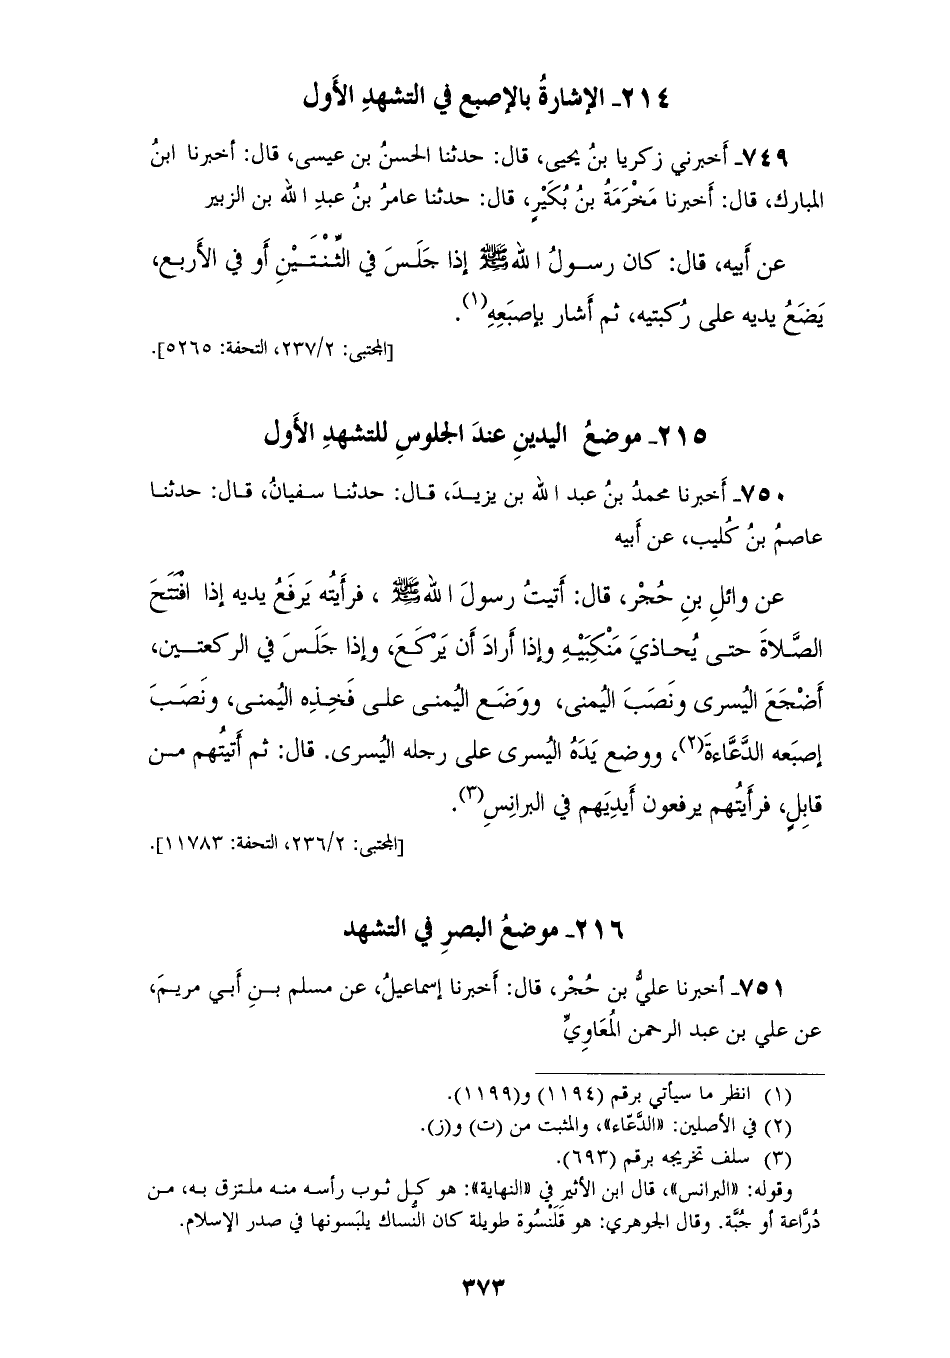 ٢١٤ـ الإشارةُ بالإصبع في التشهدِ الأَول
٧٤٩ـ أَخبرني زكريا بنُ يحيى، قال: حدثنا الحسنُ بن عيسى، قال: أخبرنا ابنُ
المبارك، قال: أَخبرنا مَخْرَمَةُ بنُ بُكَيْرٍ، قال: حدثنا عامرُ بنُ عبدِ الله بن الزبير
عن أَبيه، قال: كان رسولُ اللهﷺ إذا جَلَسَ في الثِّنْتَيْنِ أَو في الأَربع،
يَضَعُ يديه على رُكبتيه، ثم أَشار بإِصبَعِهِ(١).
[المجتبى: ٢٣٧/٢، التحفة: ٥٢٦٥].
٢١٥ـ موضعُ اليدينِ عندَ الجلوسِ للتشهدِ الأَول
٧٥٠ـ أَخبرنا محمدُ بنُ عبد الله بن يزيدَ، قال: حدثنا سفيانُ، قال: حدثنا
عاصمُ بنُ كُليب، عن أَبيه
عن وائلِ بنِ حُجْر، قال: أَتيتُ رسولَ اللهﷺ ، فرأَيتُه يَرفَعُ يديه إذا افْتَتَحَ
الصَّلاةَ حتى يُحاذيَ مَنْكِبَيْهِ وإذا أَرادَ أَن يَرْكَعَ، وإذا جَلَسَ في الركعتين،
أَضْجَعَ اليُسرى ونَصَبَ اليُمنى، ووَضَع اليُمنى على فَخِذِه اليُمنى، ونَصَبَ
إصبَعه الدَّعَّاءةَ(٢)، ووضع يَدَهُ اليُسرى على رجله اليُسرى. قال: ثم أَتيتُهم من
قابِلٍ، فرأَيتُهم يرفعون أَيدِيَهم في البرانِسِ(٣).
[المجتبى: ٢٣٦/٢، التحفة: ١١٧٨٣].
٢١٦ـ موضعُ البصرِ في التشهد
٧٥١ـ أخبرنا عليُّ بن حُجْر، قال: أَخبرنا إسماعيلُ، عن مسلم بنِ أَبي مريمَ،
عن علي بن عبد الرحمن المُعَاوِيِّ
(١) انظر ما سيأتي برقم (١١٩٤) و(١١٩٩).
(٢) في الأصلين: «الدَّعّاء»، والمثبت من (ت) و(ز).
(٣) سلف تخريجه برقم (٦٩٣).
وقوله: «البرانس»، قال ابن الأثير في «النهاية»: هو كل ثوب رأسه منه ملتزق به، من
دُرَّاعة أو جُبَّة. وقال الجوهري: هو قَلَنْسُوة طويلة كان النُّساك يلبَسونها في صدر الإسلام.
٣٧٣